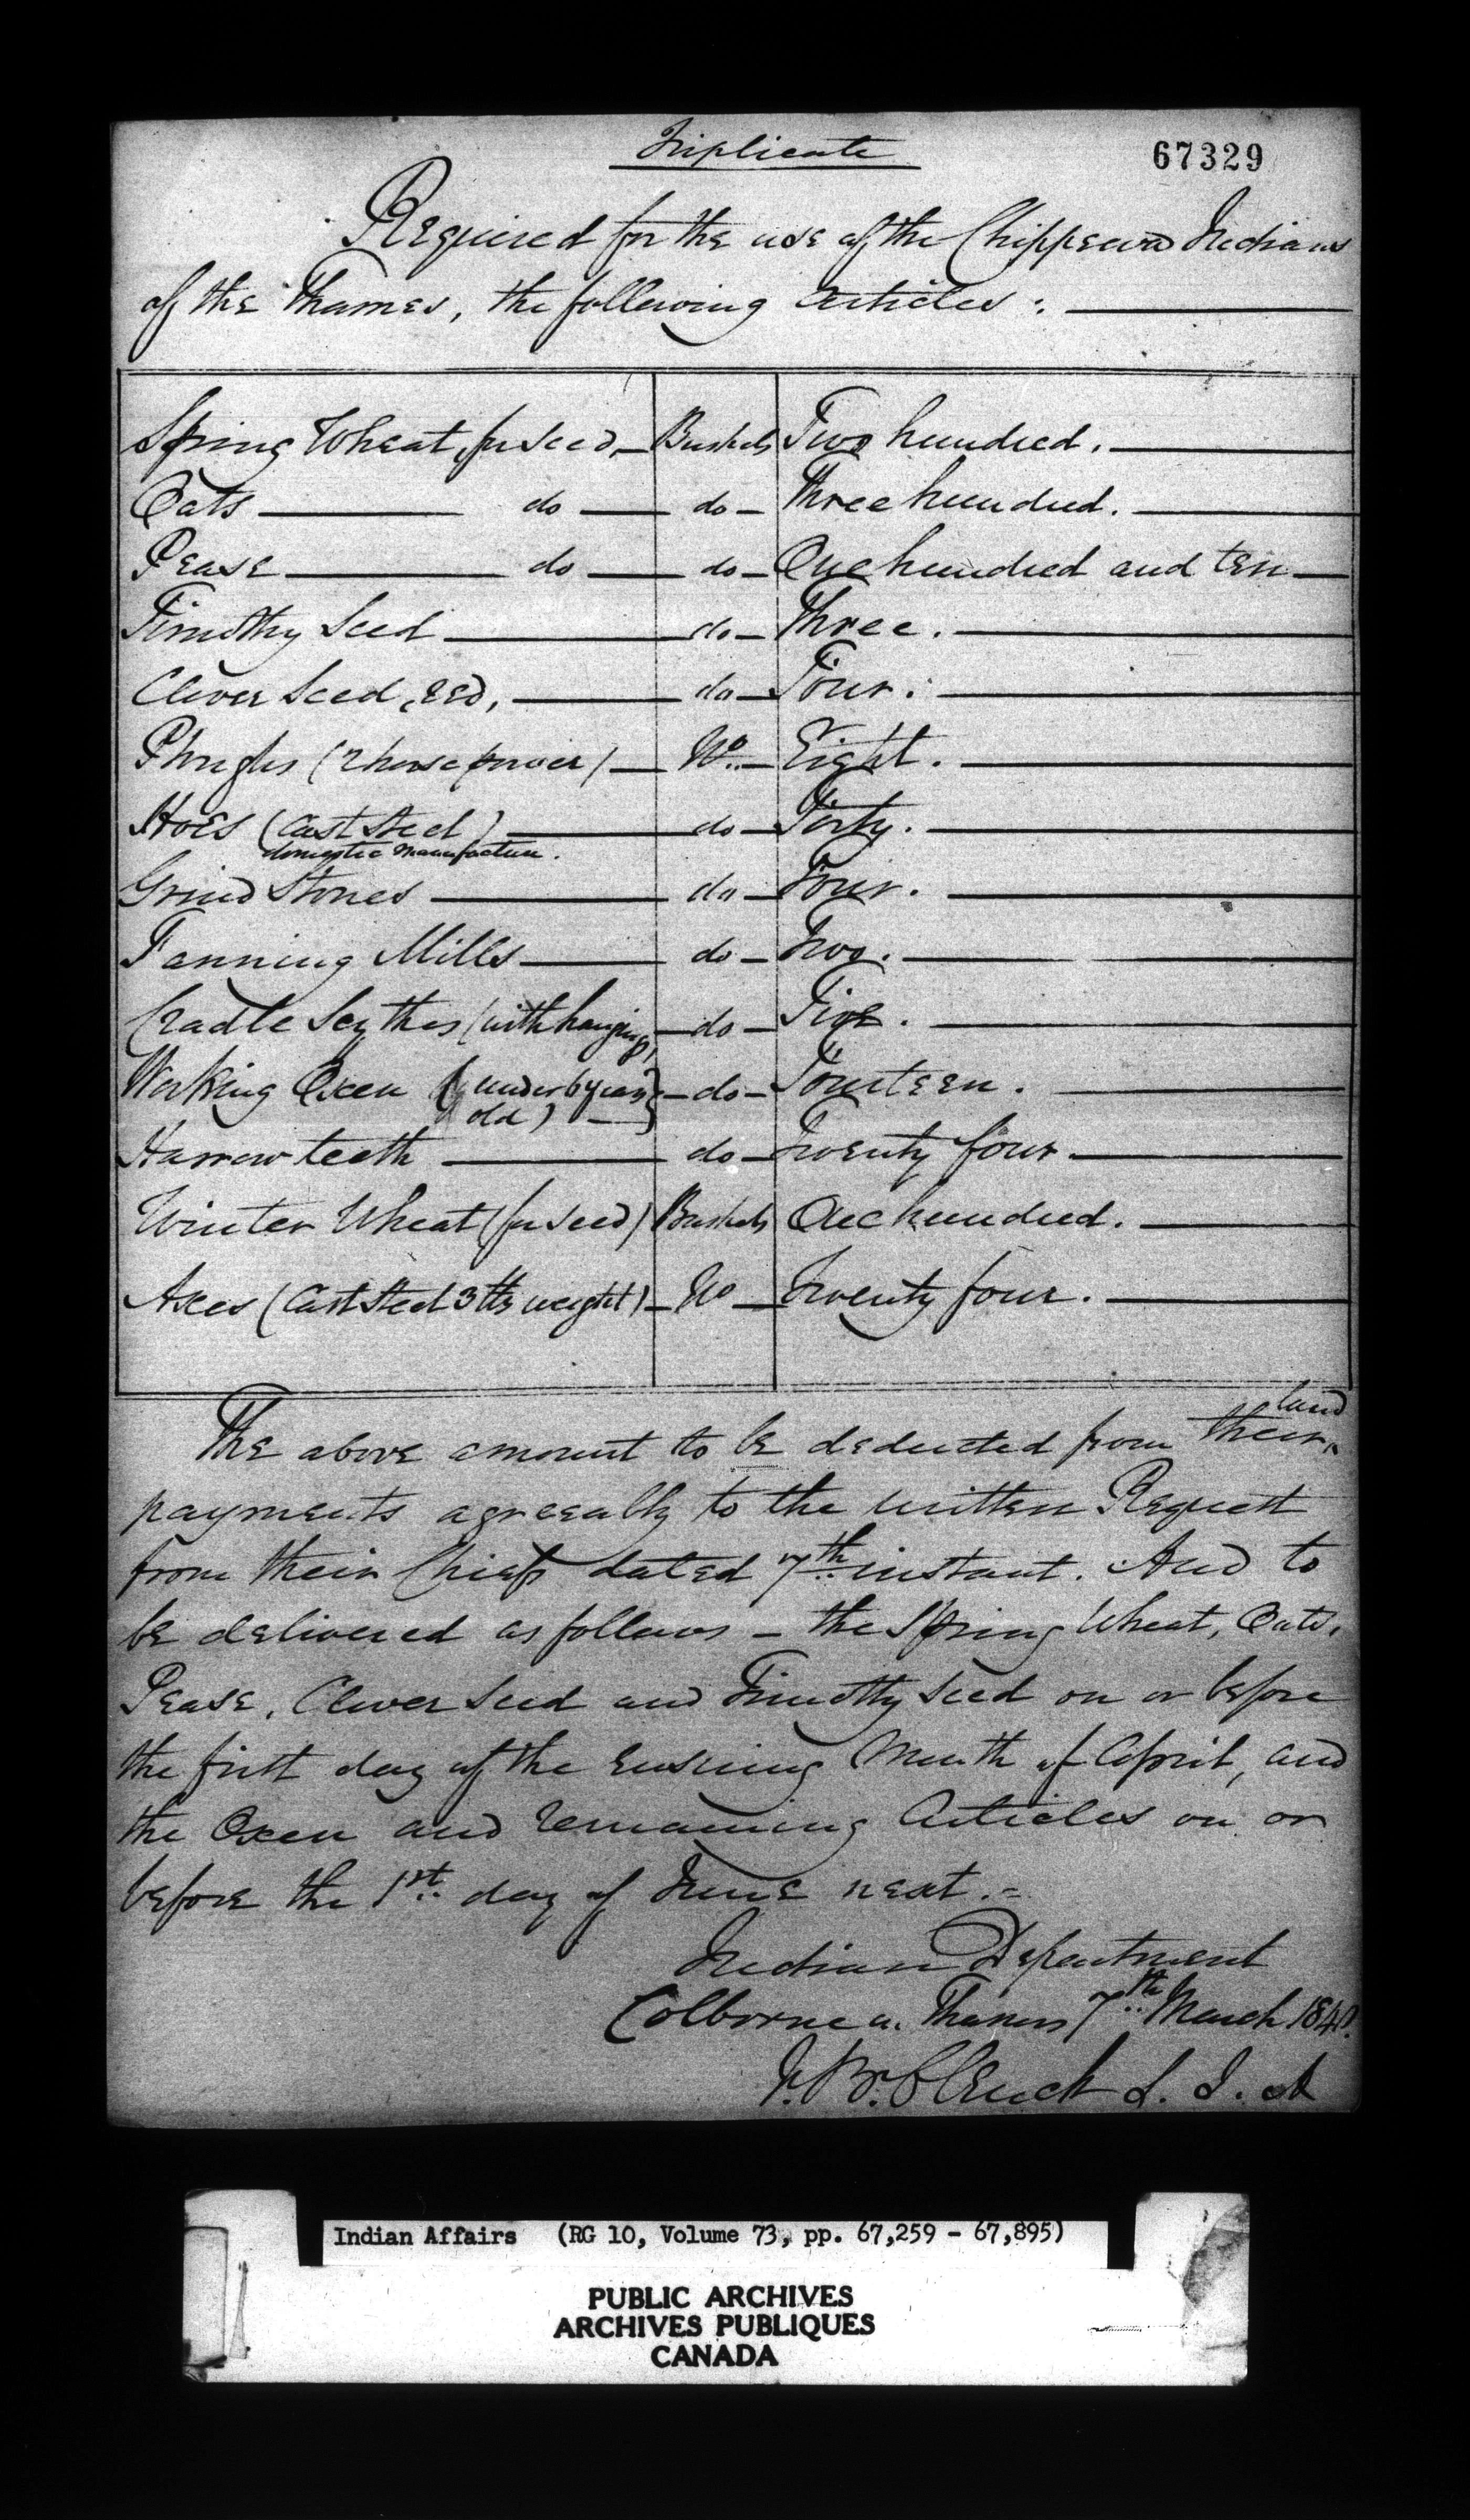 Triplicate
67329
Required for the use of the Chippewa Indians
of the Thames, the following articles :
Spring Wheat, for seed, Bushels Two hundred.
Oats do do Three hundred.
Pease do do One hundred and ten
Timothy Seed do Three.
Clover Seed, red, do Four.
Ploughs (2 horse power) No. Eight.
Hoes (Cast Steel) do Forty.
domestic manufacture.
Grind Stones do Four.
Fanning Mills do Two.
Cradle Scythes (with hangings) do Five.
Working Oxen (under 6 years do Fourteen.
old)
Harrow teeth do Twenty four.
Winter Wheat (for seed) Bushels One hundred.
Axes (Cast Steel 3 lbs weight) No Twenty four.
land
The above amount to be deducted from their
payments agreeably to the written Request
from their Chiefs dated 7th instant. And to
be delivered as follows – the Spring Wheat, Oats,
Pease, Clover Seed and Timothy Seed on or before
the first day of the ensuing Month of April, and
the Oxen and remaining Articles on or
before the 1st day of June next.
Indian Department
Colborne on Thames 7th March 1840.
J. B. Clench S. I. A
Indian Affairs (RG 10, Volume 73, pp. 67,259 - 67,895)
PUBLIC ARCHIVES
ARCHIVES PUBLIQUES
CANADA